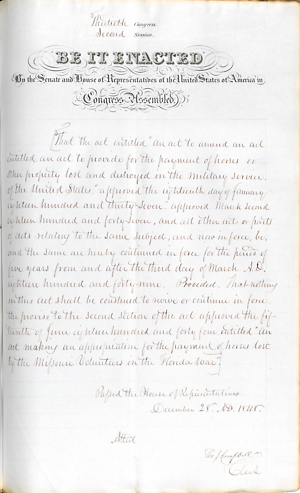 Thirtieth Congress
Second Session.
BE IT ENACTED
By the Senate and House of Representatives of the United States of America in
Congress Assembled,
That the act entitled "An act to amend an act
entitled an act to provide for the payment of horses or
other property lost and destroyed in the military service
of the United States" approved the eighteenth day of January
eighteen hundred and thirty-seven" approved March second
eighteen hundred and forty-seven, and all other acts or parts
of acts relating to the same subject, and now in force, be,
and the same are hereby continued in force for the period of
five years from and after the third day of March A.D.
eighteen hundred and forty-nine. Provided, That nothing
in this act shall be construed to revive or continue in force
the proviso to the second section of the act approved the fif-
teenth of June eighteen hundred and forty four entitled "An
act making an appropriation for the payment of horses lost
by the Missouri Volunteers in the Florida War"
Passed the House of Representatives
December 28. AD. 1848.
Attest
Clerk